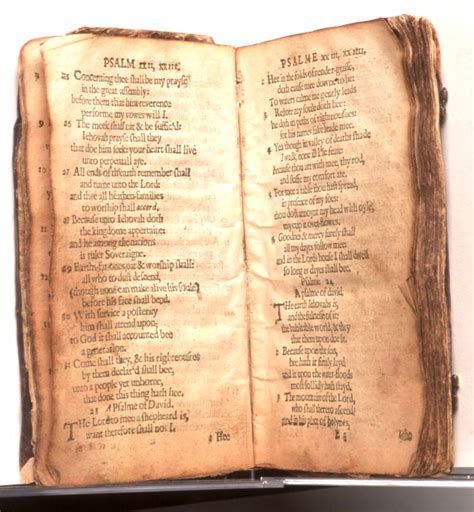 PSALM xxii, xxiii.
25 Concerning thee shall be my prayse
in the great assembly:
before them that him reverence
performe my vowes will I.
26 The meek shall eat & be suffic'd:
Iehovah prayse shall they
that doe him seek: your heart shall live
unto perpetuall aye.
27 All ends of th'earth remember shall
and turne unto the Lord:
and thee all heathen-families
to worship shall accord,
28 Because unto Iehovah doth
the kingdome appertaine:
and he among the nations
is ruler Soveraigne.
29 Earths-fat-ones, eat & worship shall:
all who to dust descend,
(though none can make alive his soule)
before his face shall bend.
30 With service a posterity
him shall attend upon;
to God it shall accounted bee
a generation.
31 Come shall they, & his righteousnes
by them declar'd shall bee,
unto a people yet unborne,
that done this thing hath hee.
23 A Psalme of David.
The Lord to mee a shepheard is,
want therefore shall not I.
2 Hee
PSALME xxiii, xxiiii.
2 Hee in the folds of tender-grasse,
doth cause mee downe to lie:
To waters calme me gently leads
3 Restore my soule doth hee:
he doth in paths of righteousnes:
for his names sake leade mee.
4 Yea though in valley of deaths shade
I walk, none ill I'le feare:
because thou art with mee, thy rod,
and staffe my comfort are.
5 For mee a table thou hast spread,
in presence of my foes:
thou dost annoynt my head with oyle,
my cup it over-flowes.
6 Goodnes & mercy surely shall
all my dayes follow mee:
and in the Lords house I shall dwell
so long as dayes shall bee.
Psalme 24
A psalme of david.
The earth Iehovahs is,
and the fulnesse of it:
the habitable world, & they
that there upon doe sit.
2 Because upon the seas,
hee hath it firmly layd:
and it upon the water-floods
most sollidly hath stayd,
3 The mountaine of the Lord,
who shall thereto ascend?
and in his place of holynes,
E